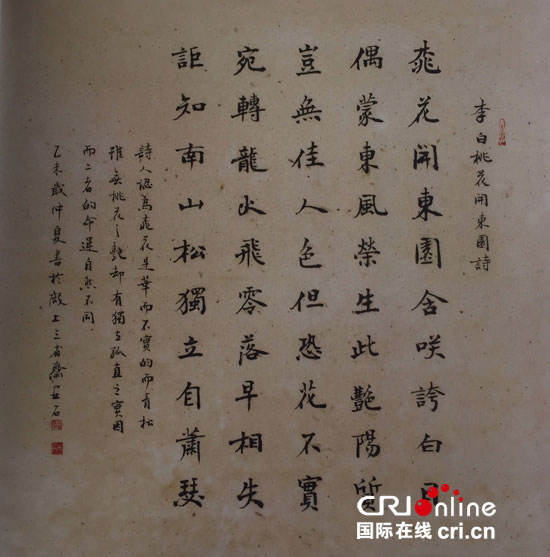 李白桃花開東園詩
桃花開東園含咲誇白日
偶蒙東風榮生此艷陽質
豈無佳人色但恐花不實
宛轉龍火飛零落早相失
詎知南山松獨立自蕭瑟
詩人認為桃花是華而不實的而青松
雖無桃花之艷却有獨立孤直之實因
而二者的命運自然不同
乙未歲仲夏書於上三省齋石
CRIonline
国际在线 cri.cn